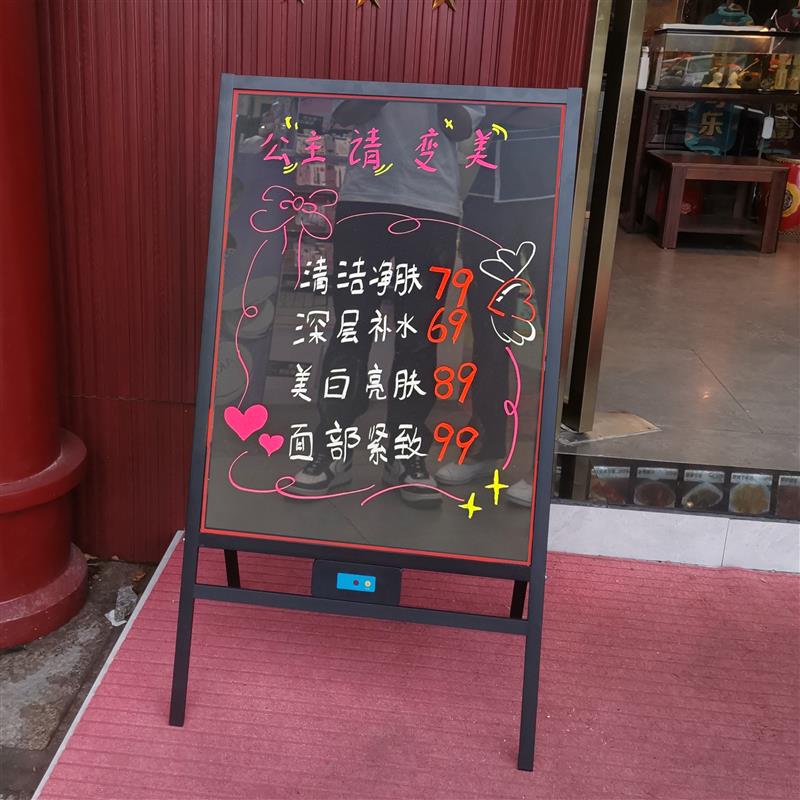 公主请变美
清洁净肤 79
深层补水 69
美白亮肤 89
面部紧致 99
乐